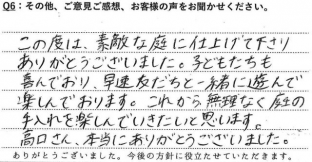 Q6：その他、ご意見ご感想、お客様の声をお聞かせください。
この度は、素敵な庭に仕上げて下さり
ありがとうございました。子どもたちも
喜んでおり、早速友だちと一緒に遊んで
楽しんでおります。これから無理なく庭の
手入れを楽しんでいきたいと思います。
高口さん、本当にありがとうございました。
ありがとうございました。今後の方針に役立たせていただきます。